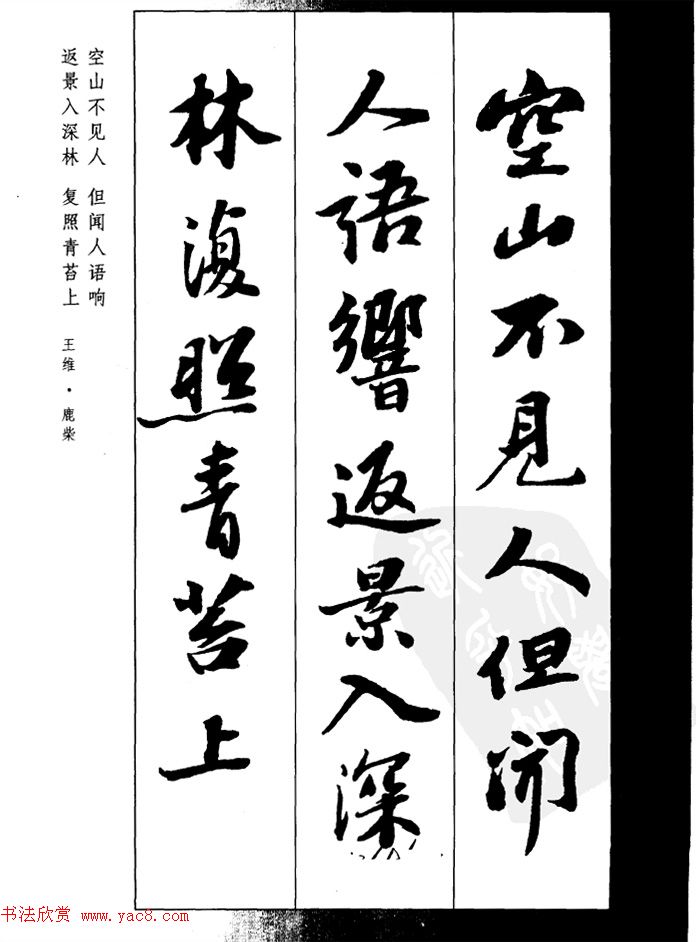 空山不見人但聞
人語響返景入深
林復照青苔上
空山不见人 但闻人语响
返景入深林 复照青苔上
王维·鹿柴
书法欣赏 www.yac8.com